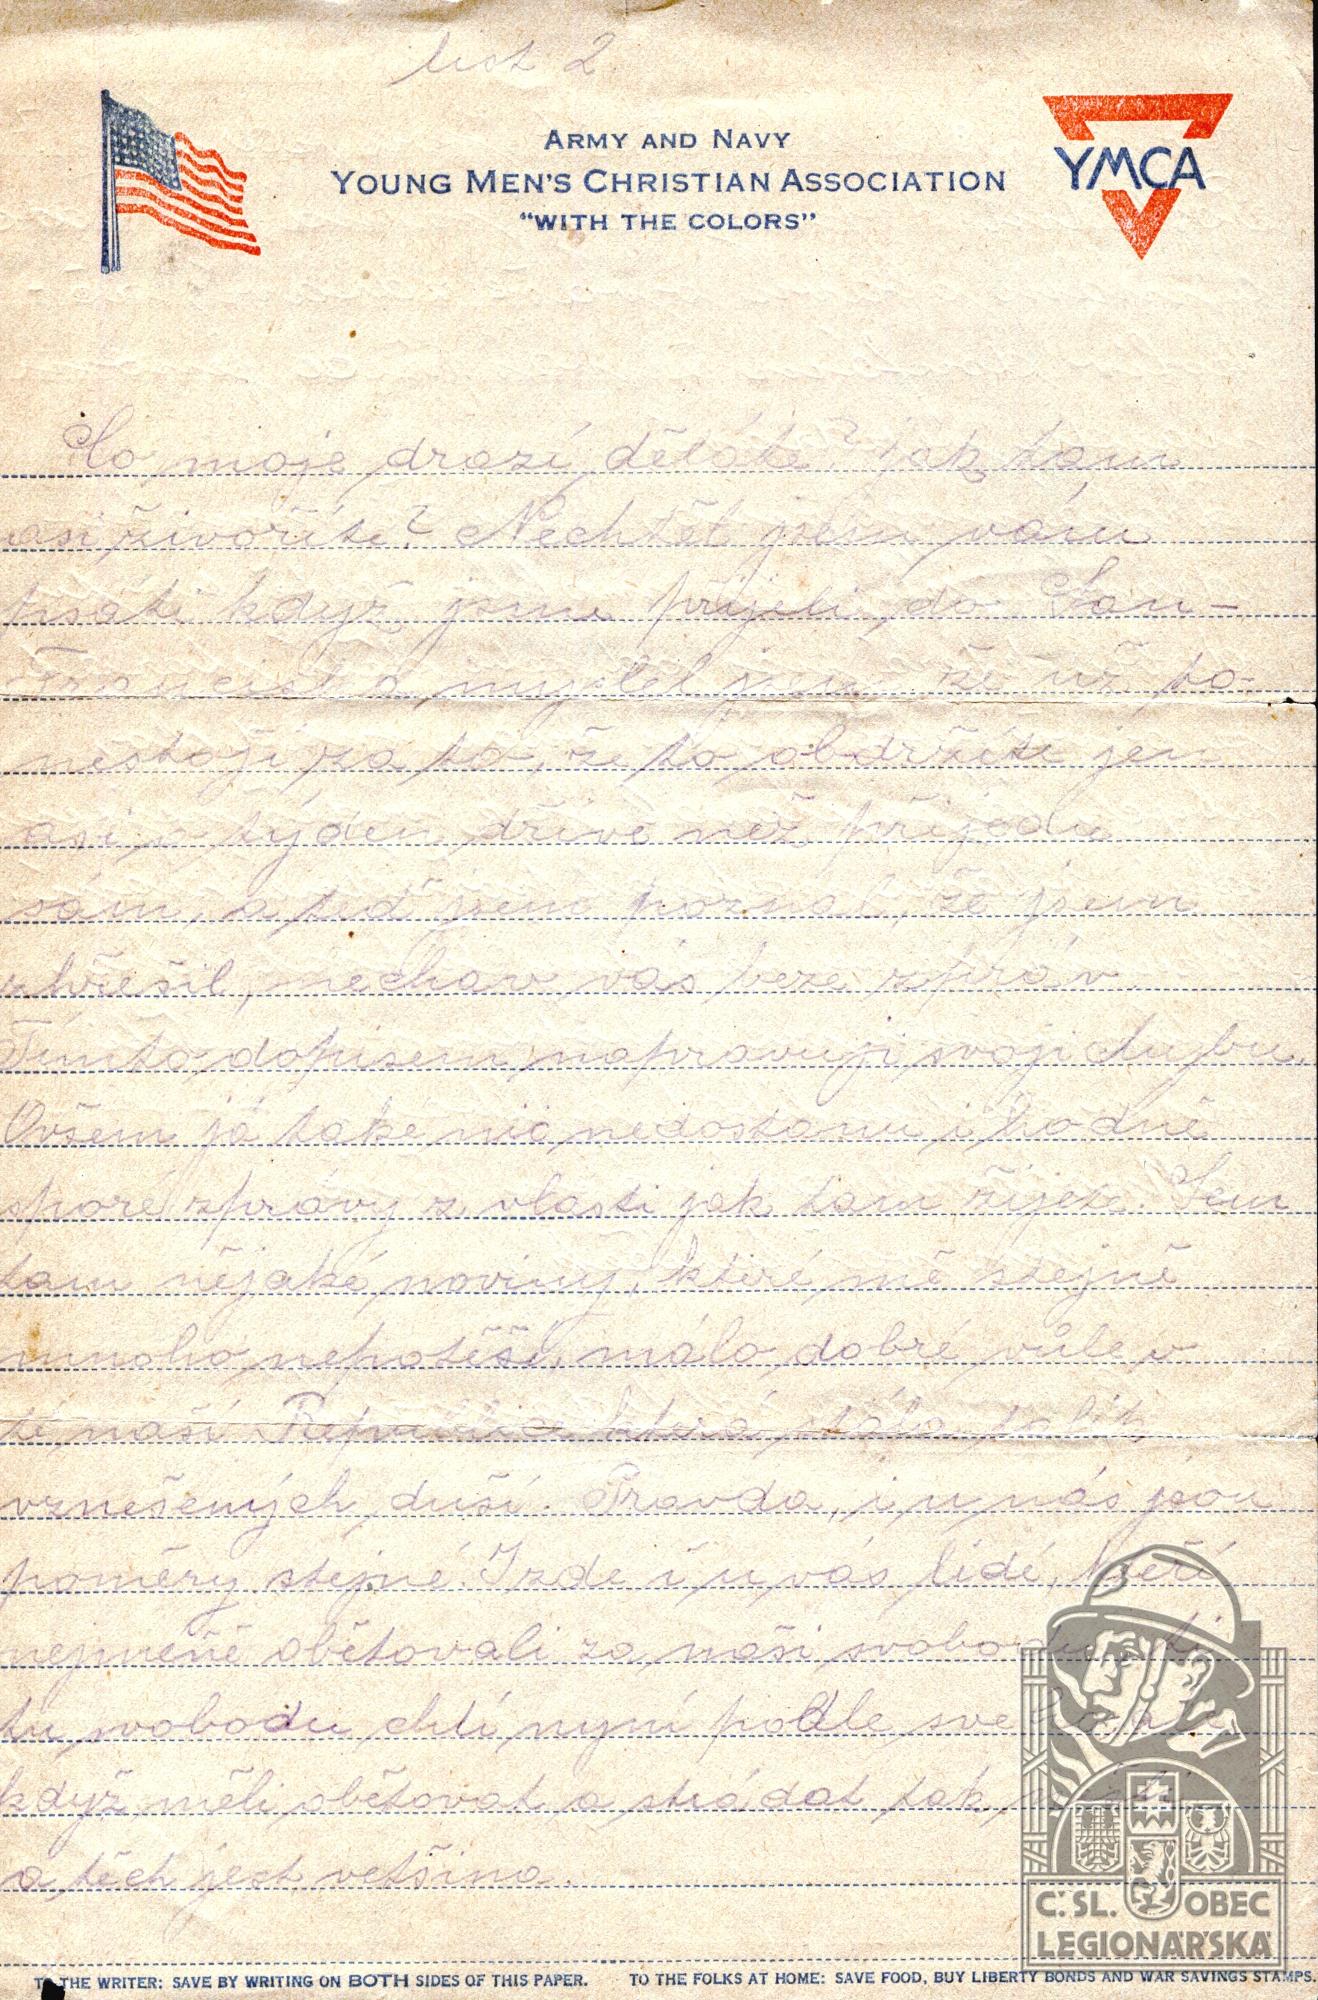 list 2.
ARMY AND NAVY
YOUNG MEN'S CHRISTIAN ASSOCIATION
"WITH THE COLORS"
YMCA
Co moje drazí děláte? jak tam
asi živoříte? Nechtěl jsem vám
psáti když jsme přijeli do San-
Francisca myslel jsem že už to
nestojí za to, že to obdržíte jen
asi o týden dříve než přijedu
sám, a teď jsem poznal, že jsem
zhřešil, nechav vás beze zpráv.
Tímto dopisem napravuji svoji chybu.
Ovšem já také nic nedostanu i hodně
sporé zprávy z vlasti jak tam žijete. Sem
tam nějaké noviny, které mě stejně
mnoho nepotěší, málo dobré vůle v
té naší Republice která stála tolik
vznešených duší. Pravda, i u nás jsou
poměry stejné. I zde i u vás lidé, kteří
nejméně obětovali za naši svobodu, ti
tu svobodu chtí nyní podle své
když měli obětovat a strádat tak
a těch jest vetšina.
Č. SL. OBEC
LEGIONÁŘSKÁ
TO THE WRITER: SAVE BY WRITING ON BOTH SIDES OF THIS PAPER. TO THE FOLKS AT HOME: SAVE FOOD, BUY LIBERTY BONDS AND WAR SAVINGS STAMPS.